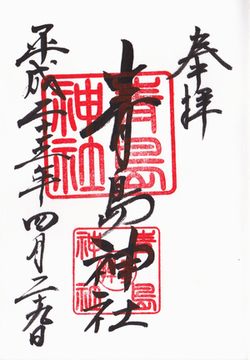 奉拝
青島神社
青島神社
青島神社
平成二十五年四月二十九日